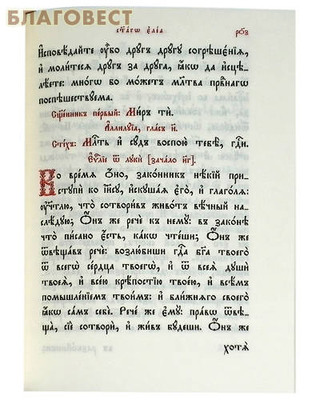 БЛАГОВЕСТ
ст҃а́гѡ є҆лі́а
рѯ҃з
И҆сповѣ́дайте ᲂу҆̀бо дрꙋ́гъ дрꙋ́гꙋ согрѣшє́нїѧ,
и҆ моли́тесѧ дрꙋ́гъ за дрꙋ́га, ꙗ҆́кѡ да и҆сцѣ-
лѣ́ете: мно́гѡ бо мо́жетъ мл҃тва првⷣнагѡ
поспѣшествꙋ́ема.
Сщ҃е́нникъ пе́рвый: Ми́ръ тѝ.
А҆ллилꙋ́їа, гла́съ и҃.
Сті́хъ: Млⷭ҇ть и҆ сꙋ́дъ воспою̀ тебѣ̀, гдⷭ҇и.
Є҆ѵⷢ҇лїе ѿ лꙋкѝ [зача́ло н҃г].
Во вре́мѧ ѻ҆́но, зако́нникъ нѣ́кїй при-
стꙋпѝ ко і҆и҃сꙋ, и҆скꙋша́ѧ є҆го̀, и҆ глаго́лѧ:
ᲂу҆чт҃лю, что̀ сотвори́въ живо́тъ вѣ́чный на-
слѣ́дꙋю; Ѻ҆́нъ же речѐ къ немꙋ̀: въ зако́нѣ
что̀ пи́сано є҆́сть, ка́кѡ чте́ши; Ѻ҆́нъ же
ѿвѣща́въ речѐ: возлю́биши гдⷭ҇а бг҃а твоего̀
ѿ всегѡ̀ се́рдца твоегѡ̀, и҆ ѿ всеѧ̀ дꙋшѝ
твоеѧ̀, и҆ все́ю крѣ́постїю твое́ю, и҆ всѣ́мъ
помышле́нїемъ твои́мъ: и҆ бли́жнѧго своего̀
ꙗ҆́кѡ са́мъ себѐ. Рече́ же є҆мꙋ̀: пра́вѡ ѿвѣ-
ща̀, сїѐ сотворѝ, и҆ жи́въ бꙋ́деши. Ѻ҆́нъ же
хотѧ̀